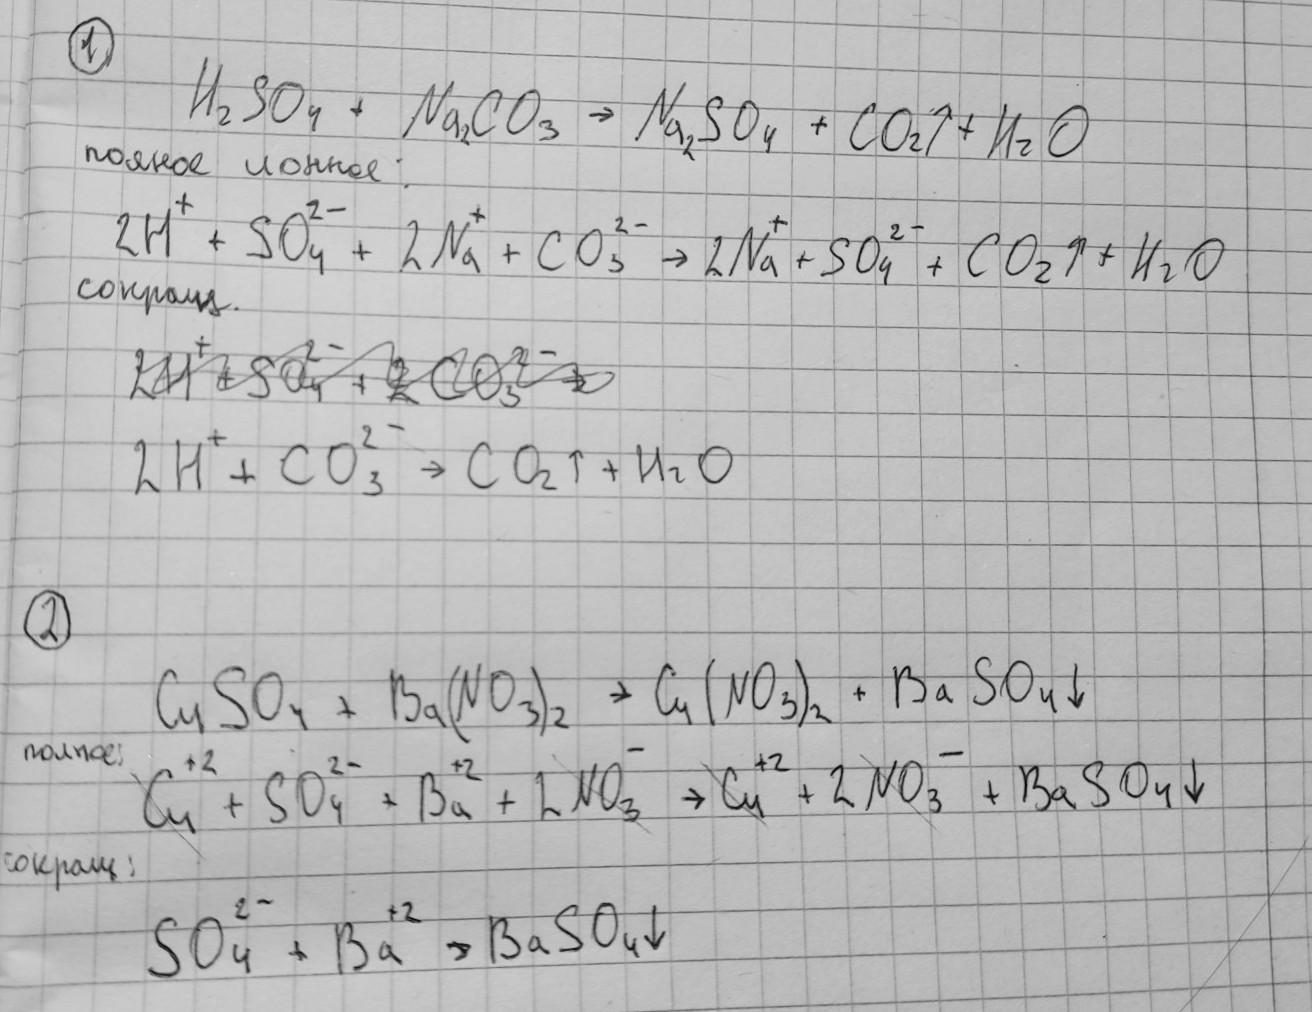 1
H₂SO₄ + Na₂CO₃ → Na₂SO₄ + CO₂↑ + H₂O
полное ионное:
2H⁺ + SO₄²⁻ + 2Na⁺ + CO₃²⁻ → 2Na⁺ + SO₄²⁻ + CO₂↑ + H₂O
сокращ.
2H⁺ + SO₄²⁻ + 2 CO₃²⁻ →
2H⁺ + CO₃²⁻ → CO₂↑ + H₂O
2
CuSO₄ + Ba(NO₃)₂ → Cu(NO₃)₂ + BaSO₄↓
полное:
Cu⁺² + SO₄²⁻ + Ba⁺² + 2NO₃⁻ → Cu⁺² + 2NO₃⁻ + BaSO₄↓
сокращ:
SO₄²⁻ + Ba⁺² → BaSO₄↓